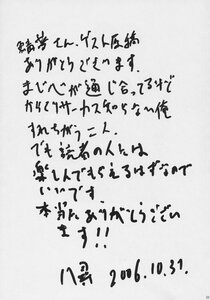 さん、ゲスト原稿
ありがとうございます。
まじへが通じ合ってるけど
知らない俺
すれちがう二人。
でも読者の人たちは
楽しんでもらえるはずなので
いいです。
本当にありがとうござい
ます!!
2006.10.31.